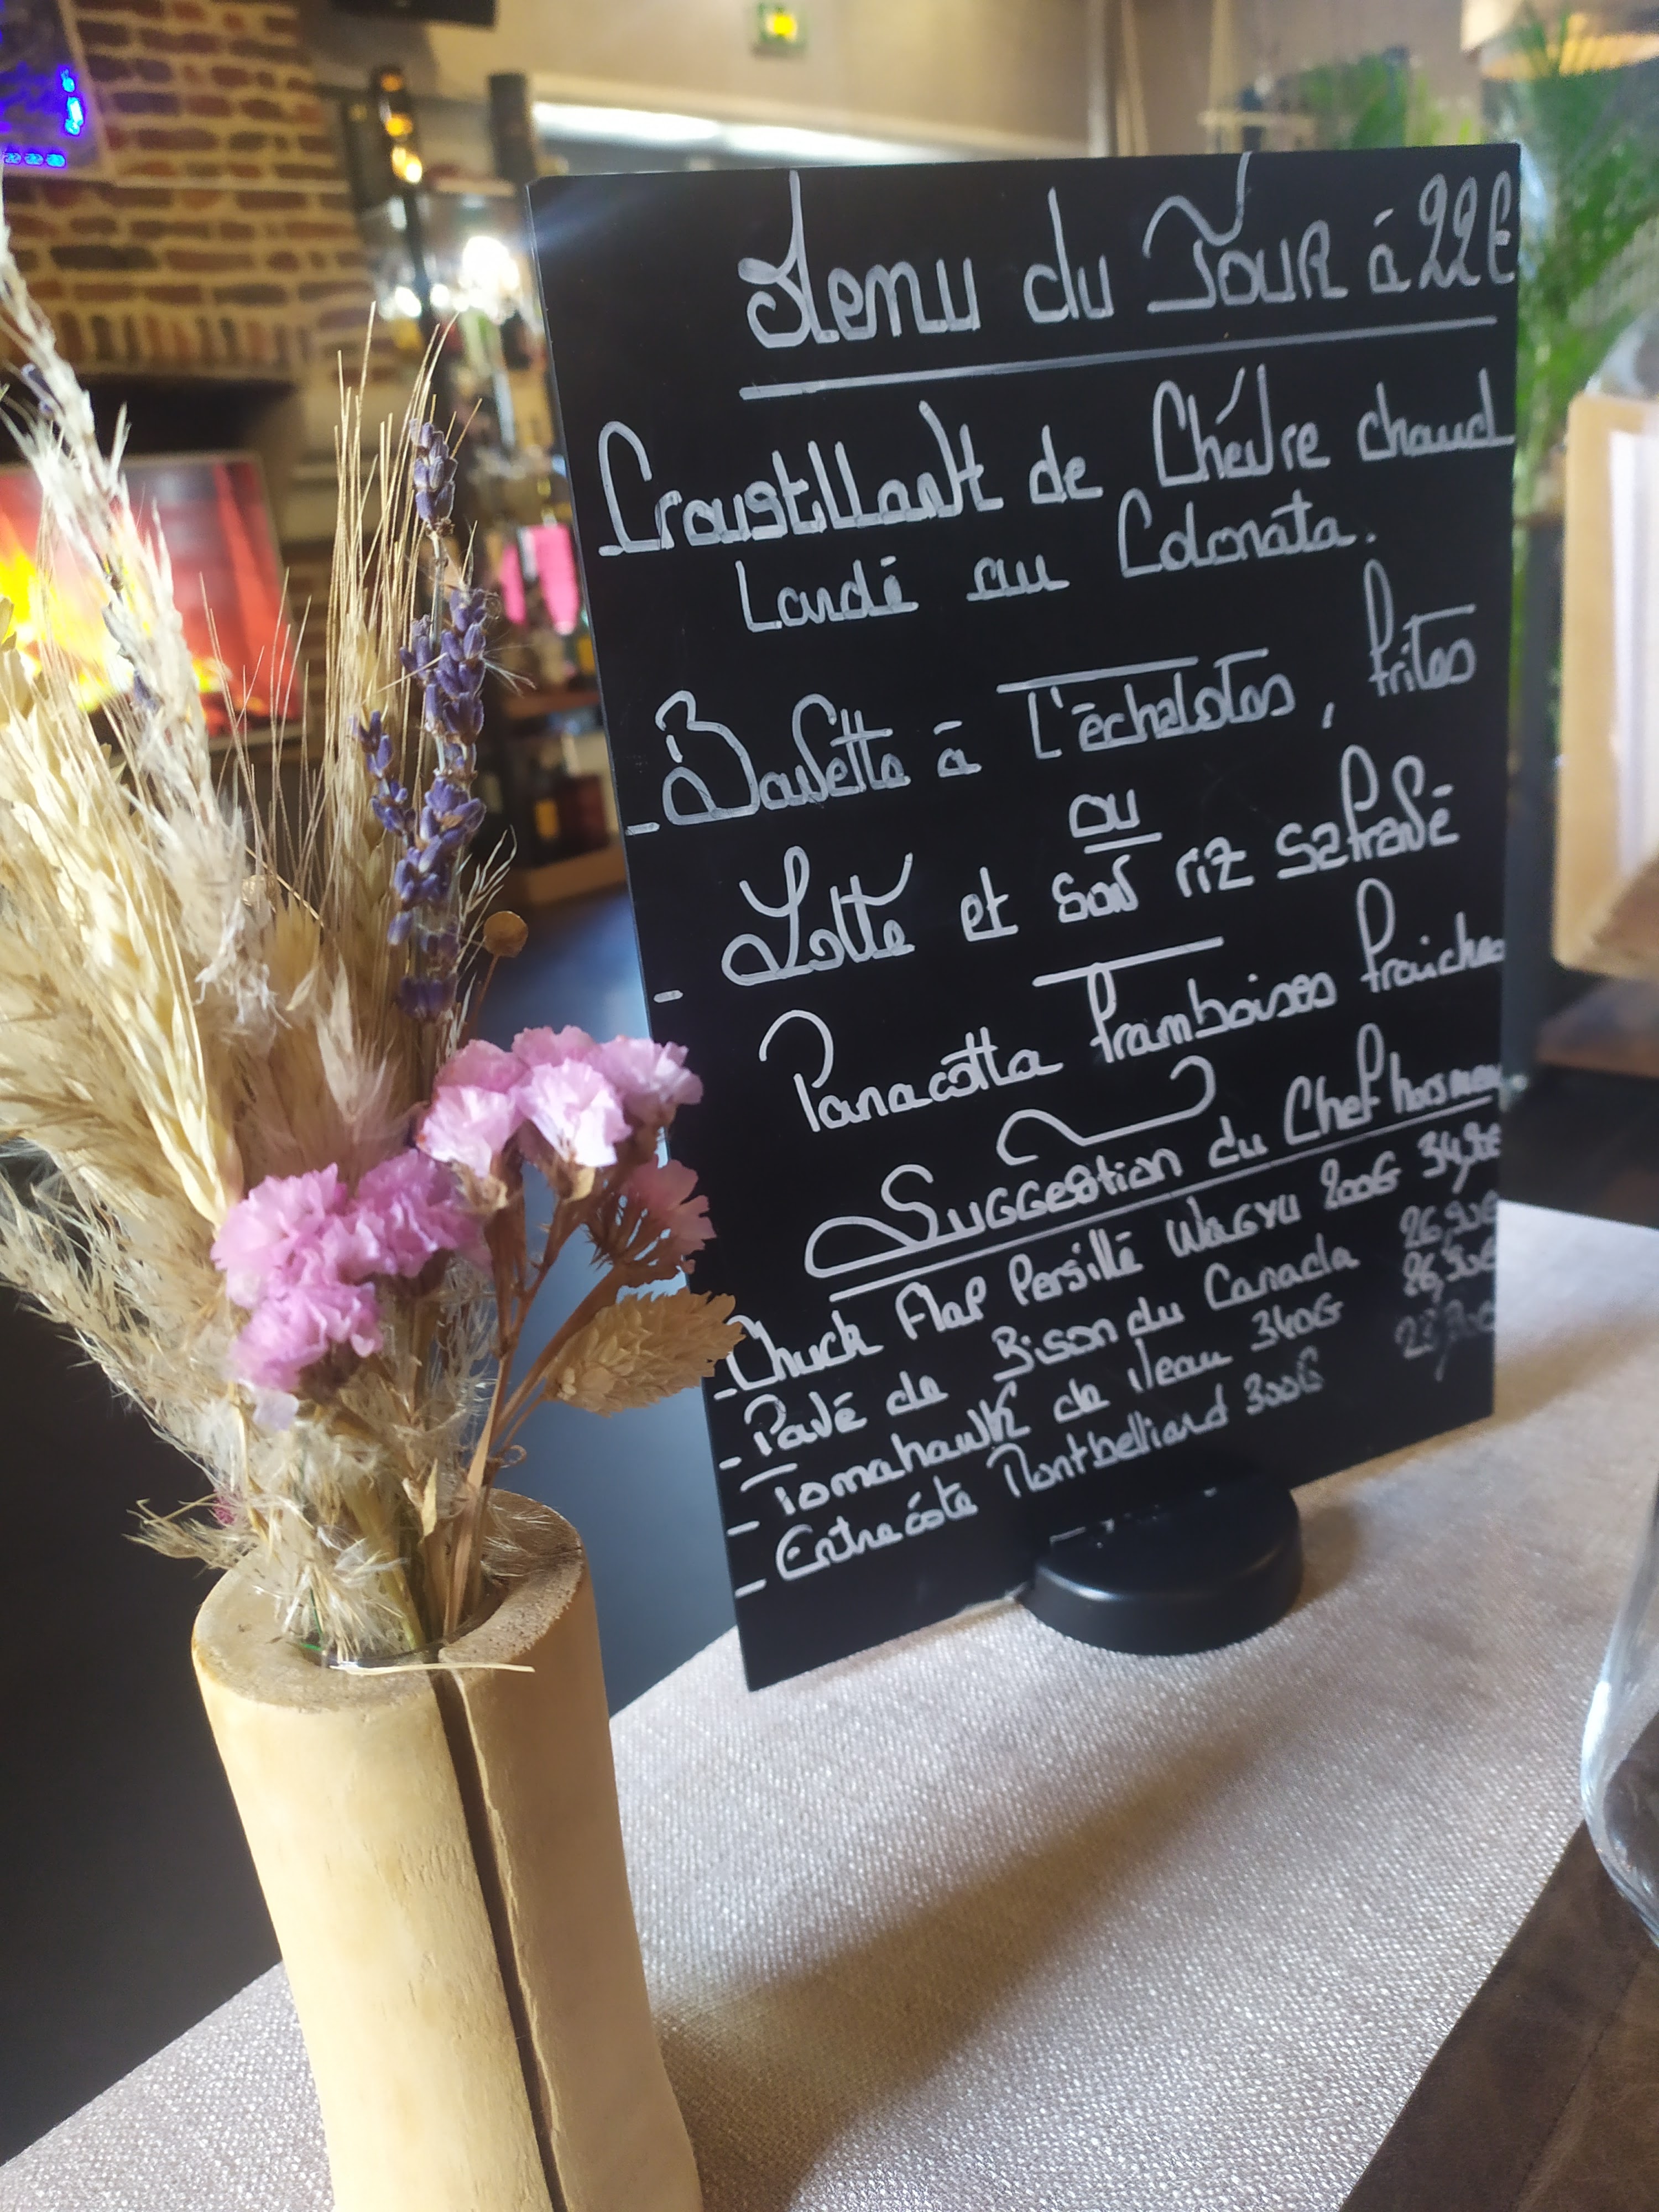 Menu du Jour à 22€
Croustillant de Chèvre chaud
Lardé au Colonata.
- Bavette à l'échalotes, frites
ou
- Lotte et son riz safrané
Panacotta framboises fraiches
Suggestion du Chef hors menu
- Chuck Flap Persillé Wagyu 200G
- Pavé de Bison du Canada 26,90€
- Tomahawk de Veau 340G 26,90€
- Entrecôte Montbelliard 300G